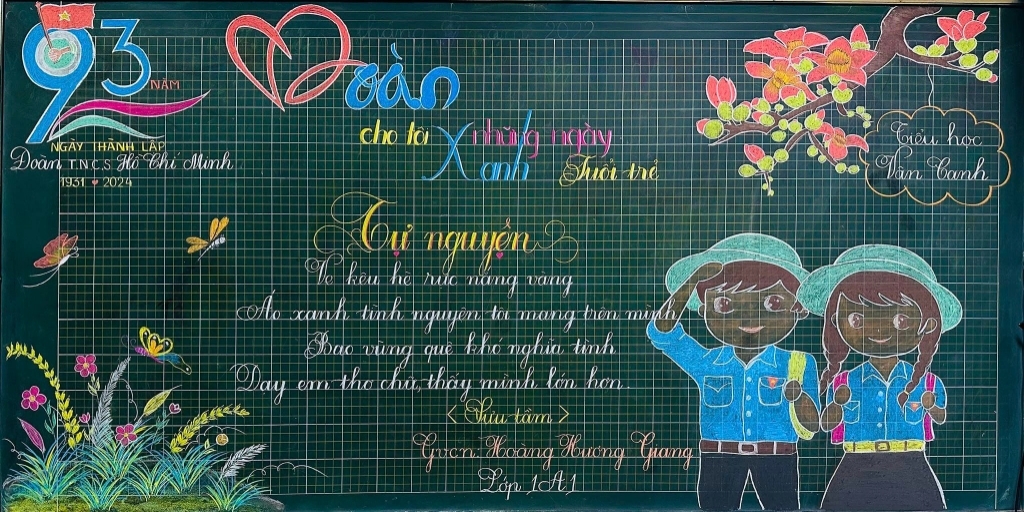 93 NĂM
NGÀY THÀNH LẬP
Đoàn T.N.C.S Hồ Chí Minh
1931 2024
Đoàn
cho tôi những ngày
Xanh Tuổi trẻ
Tiểu học
Vân Canh
Tự nguyện
Ve kêu hè rực nắng vàng
Áo xanh tình nguyện tôi mang trên mình
Bao vùng quê khó nghĩa tình
Dạy em thơ chữ, thấy mình lớn hơn.
< Sưu tầm >
Gvcn: Hoàng Hương Giang
Lớp 1A1